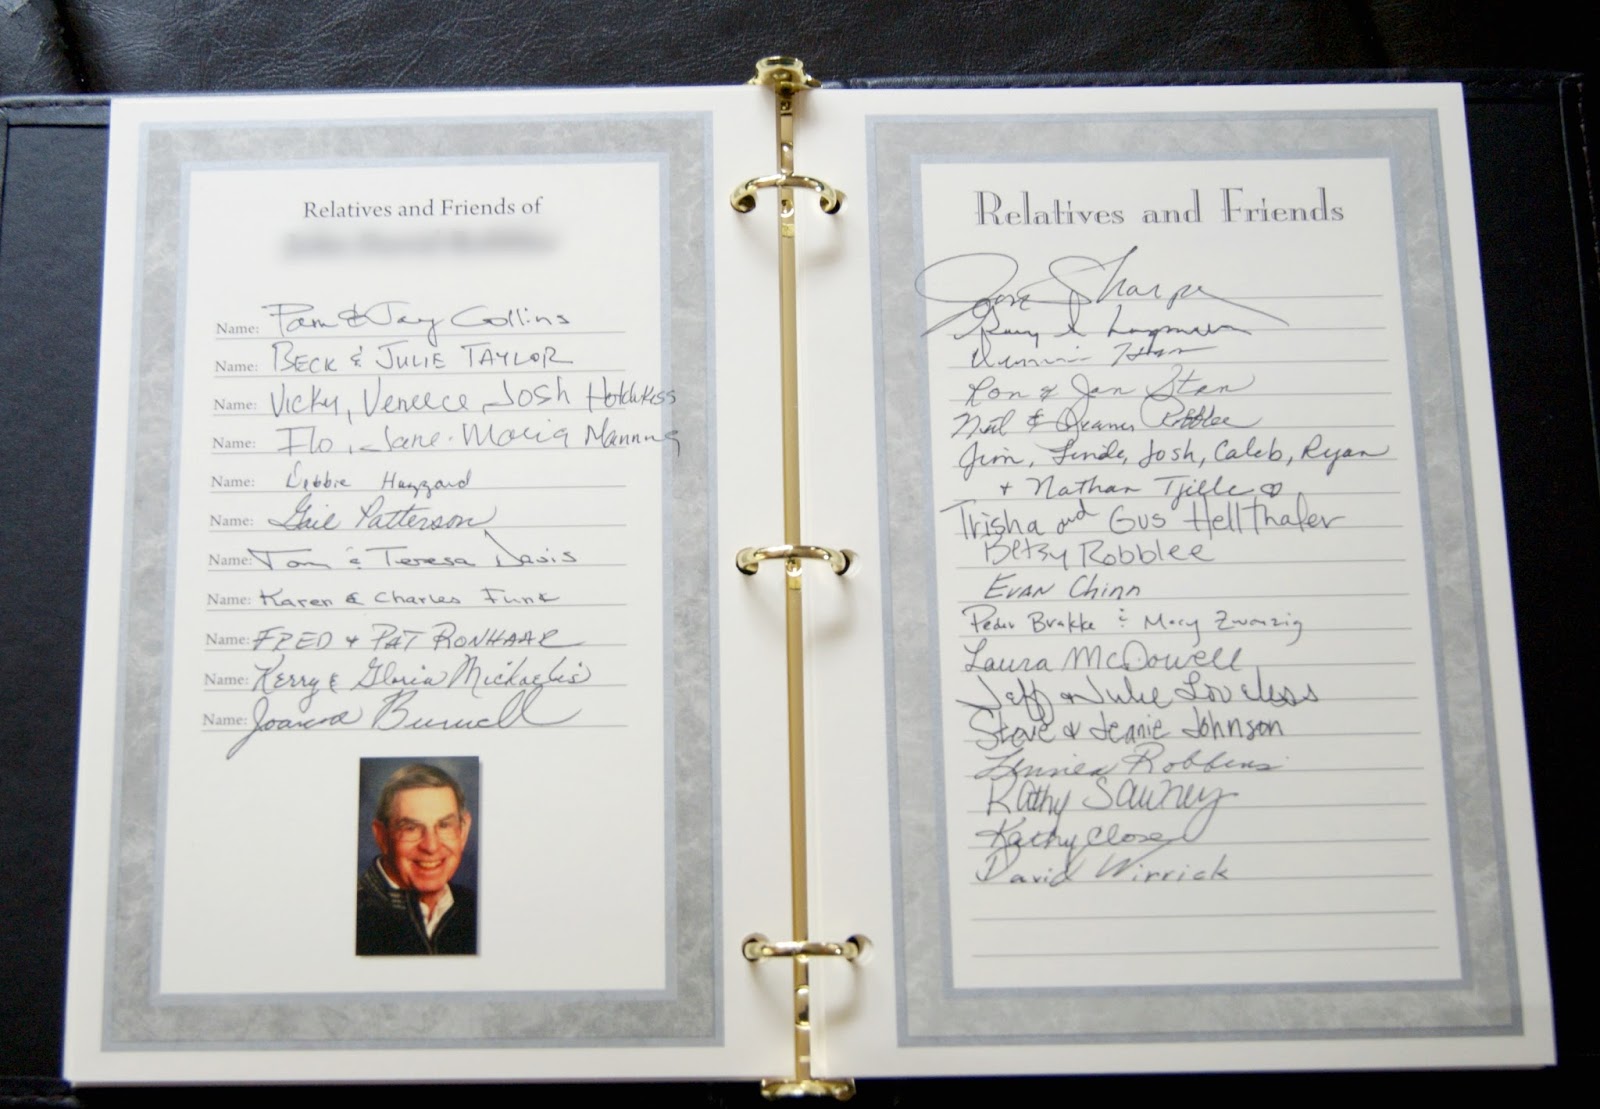 Relatives and Friends of
Name: Pam & Jay Collins
Name: BECK & JULIE TAYLOR
Name: Vicky, Veneece, Josh Hotchkiss
Name: Flo, Jane, Maria Manning
Name: Debbie Hazzard
Name: Gail Patterson
Name: Tom & Teresa Davis
Name: Karen & Charles Funk
Name: FRED & PAT RONHAAR
Name: Kerry & Gloria Michaelis
Name: Joanna Burnell
Relatives and Friends
Sharpe
Ron & Jan Stan
Neil & Robblee
Jim, Linda, Josh, Caleb, Ryan
+ Nathan Tjelle
Trisha and Gus Hellthaler
Betsy Robblee
EVAN Chinn
Peder Brakke & Mary Zwanzig
Laura McDowell
Jeff & Julie Loveless
Steve & Jeanie Johnson
Robbins
Kathy Sawrey
Kathy Close
David Wirrick